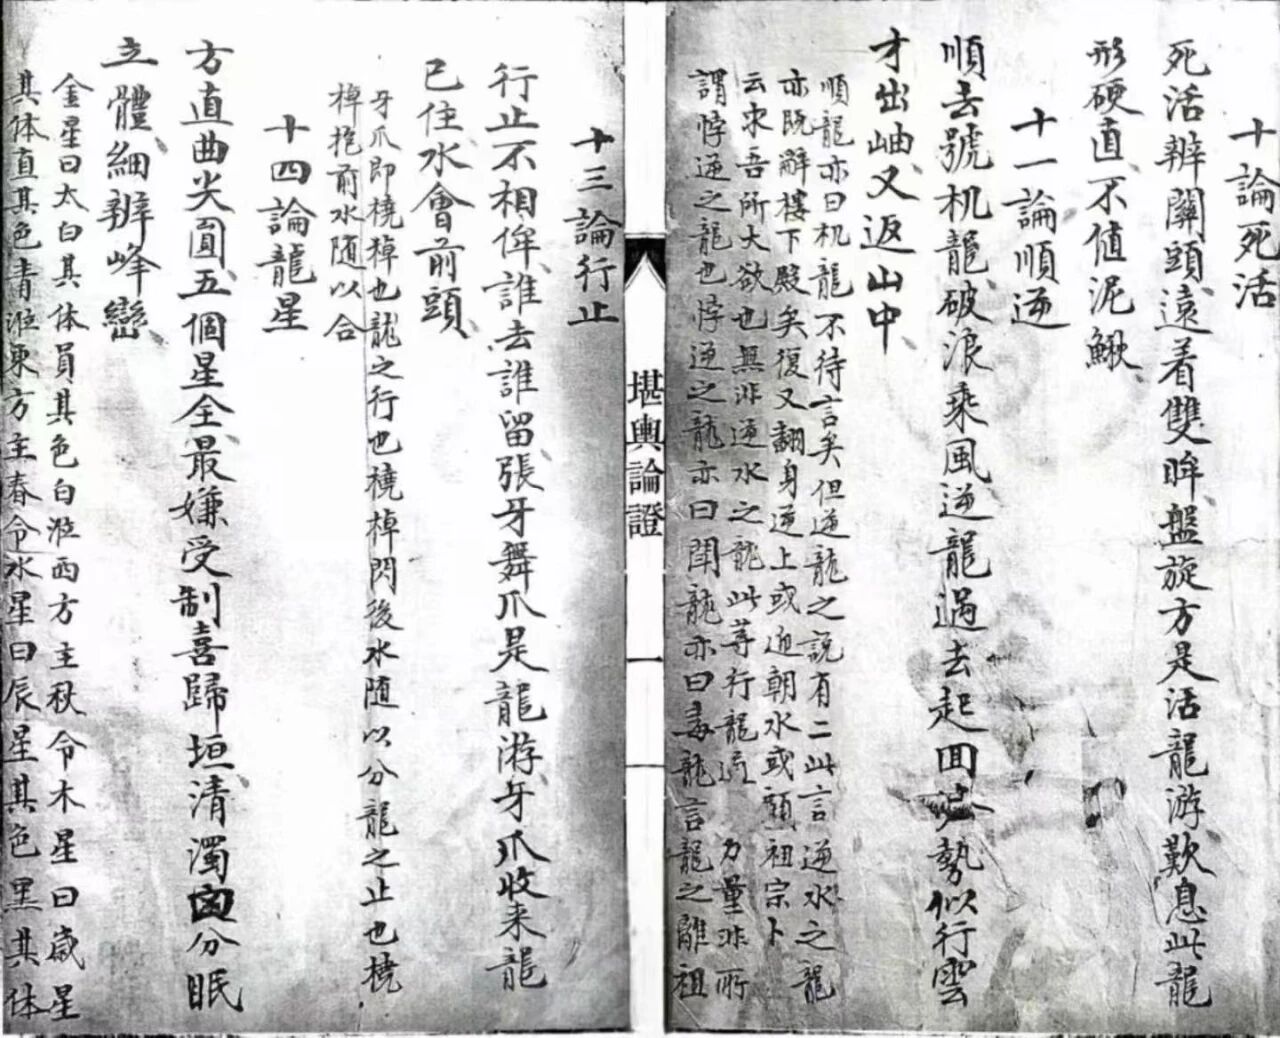 十論死活
死活辨關頭、遠着雙眸、盤旋方是活龍游、歎息此龍
形硬直、不值泥鰍、
十一論順逆
順去號机龍、破浪乘風、逆龍過去起回、勢似行雲
才出岫、又返山中、
順龍亦曰机龍不待言矣但逆龍之說有二此言逆水之龍
亦既辭樓下殿矣復又翻身逆上或迎朝水或顧祖宗卜
云求吾所大欲也無非逆水之龍此等行龍 力量非所
謂悖逆之龍也悖逆之龍亦曰 龍亦曰毒龍言龍之離祖
堪輿論證
一
十三論行止
行止不相侔、誰去誰留、張牙舞爪是龍游、牙爪收来龍
已住、水會前頭、
牙爪即橈棹也龍之行也橈棹閃後水随以分龍之止也橈
棹抱前水随以合
十四論龍星
方直曲尖圓、五個星全、最嫌受制喜歸垣、清濁 分眠
立體、細辨峰巒、
金星曰太白其体員其色白位西方主秋令木星曰歲星
其体直其色青位東方主春令水星曰辰星其色黑其体